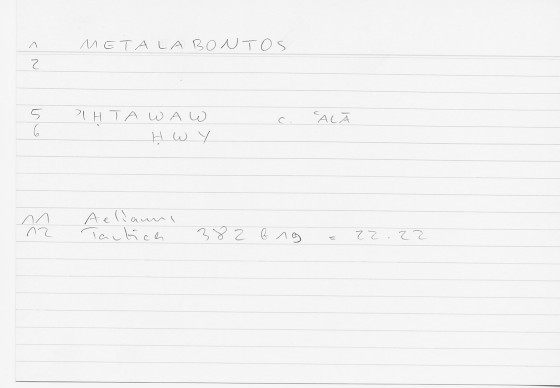 1 METALABONTOS
2
5 ʾIḤTAWAW c. ʿALĀ
6 ḤWY
11 Aelianus
12 Tactica 382 b 19 = 22.22